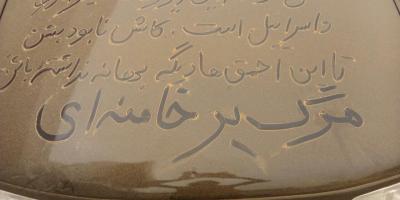 و اسراییل است. کاش نابود بشن
تا این احمق ها دیگه بهانه نداشته باشن
مرگ بر خامنه ای